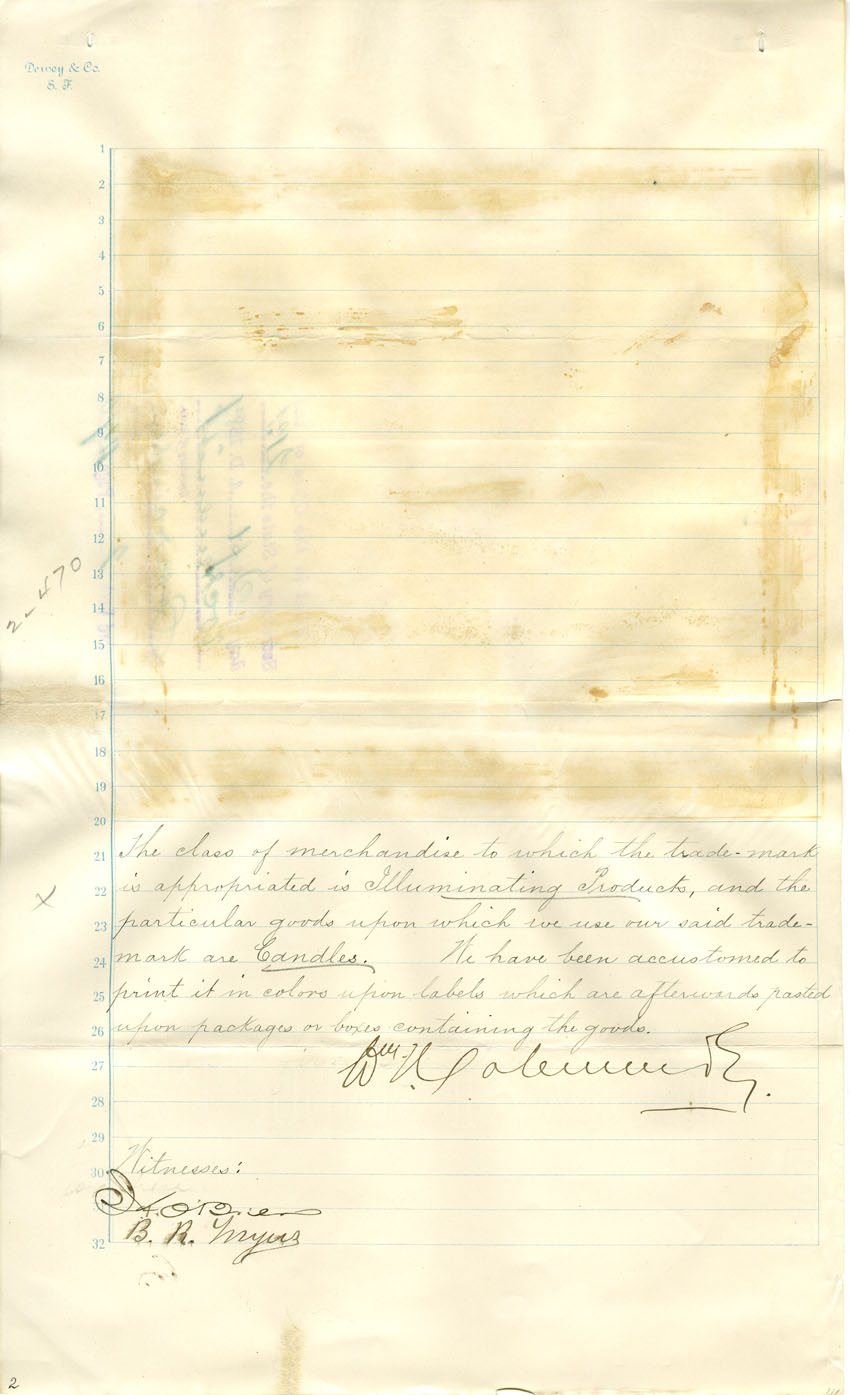 Dewey & Co.
S. F.
1
2
3
4
5
6
7
8
9
10
11
12
13
14
15
16
17
18
19
20
2-470
The class of merchandise to which the trade-mark
21
is appropriated is Illuminating Products, and the
22
X
particular goods upon which we use our said trade-
23
mark are Candles. We have been accustomed to
24
print it in colors upon labels which are afterwards pasted
25
upon packages or boxes containing the goods.
26
27
Wm T. Coleman & Co.
28
29
Witnesses:
30
B. R. Myers
32
2